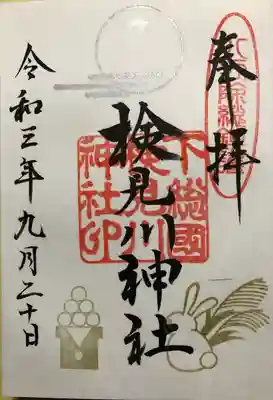 奉拝
検見川神社
下総国
検見川
神社印
令和三年九月二十日